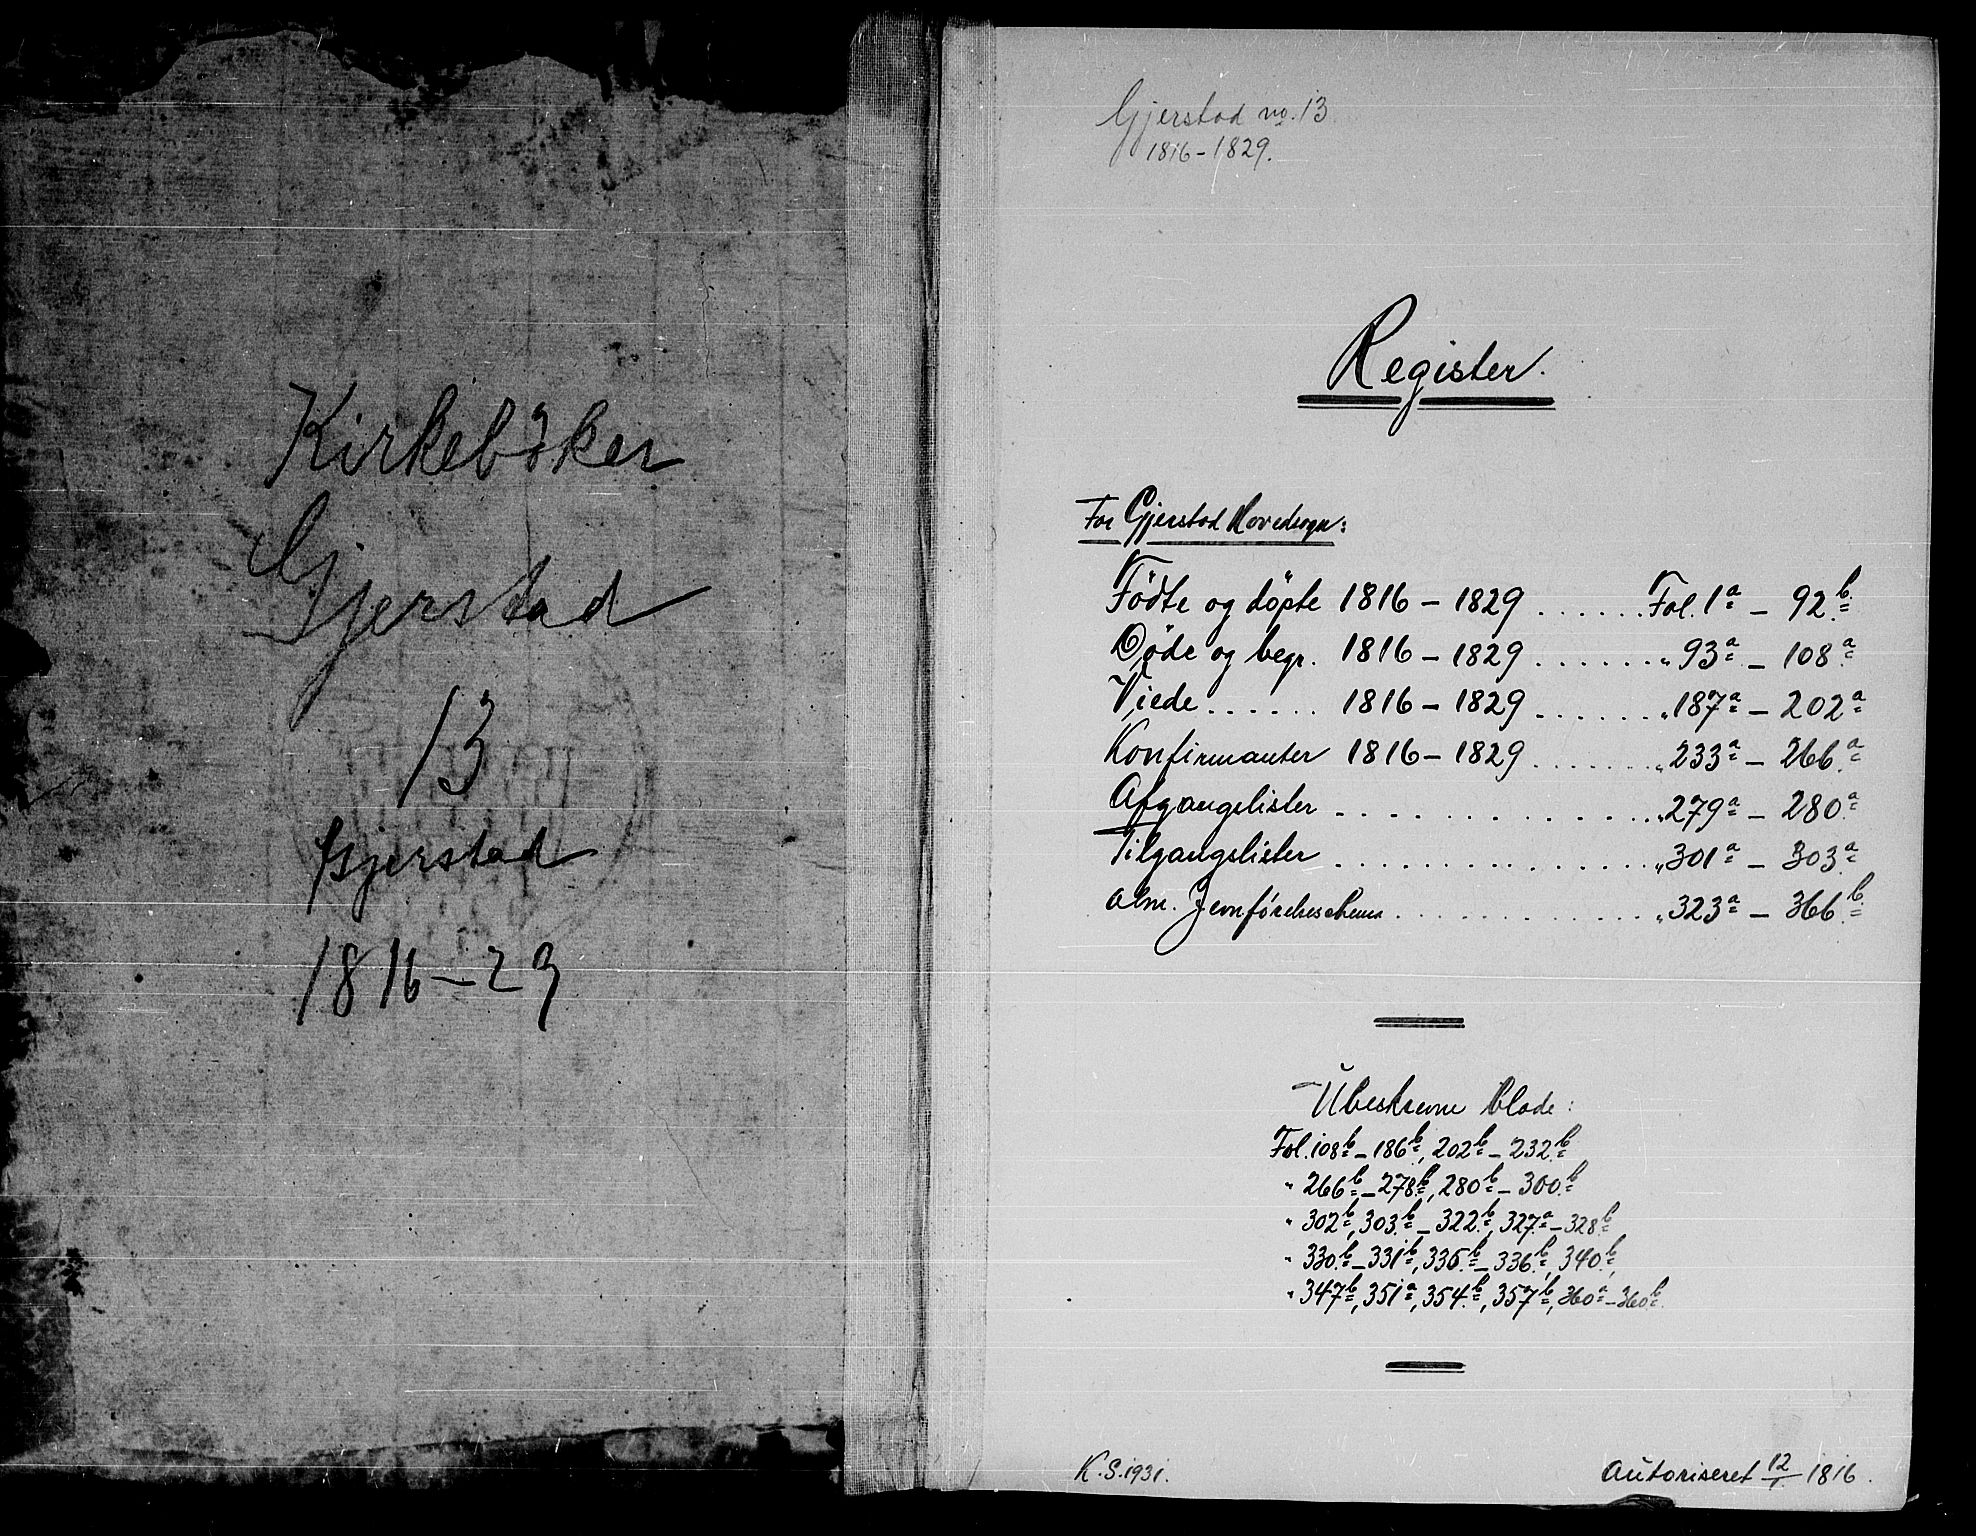 Kirkebøker
Gjerstad
13
Gjerstad
1816-29
Gjerstad no. 13
1816-1829.
Register.
For Gjerstad Hovedsogn:
Födte og döpte 1816 - 1829 ...... Fol. 1a - 92b.
Døde og begr. 1816 - 1829 ...... " 93a - 108a
Viede ...... 1816 - 1829 ...... " 187a - 202a
Konfirmanter 1816 - 1829 ...... " 233a - 266a
Afgangslister ............ " 279a - 280a
Tilgangslister ............ " 301a - 303a
Alm. Jevnførelseschema ............ " 323a - 366b
Ubeskrevne blade:
Fol. 108b - 186b, 202b - 232b
" 266b - 278b, 280b - 300b
" 302b, 303b - 322b, 327a - 328b
" 330b - 331b, 335b - 336b, 340b,
" 347b, 351a, 354b, 357b, 360a - 360b.
K.S. 1931.
Autoriseret 12/1 1816.